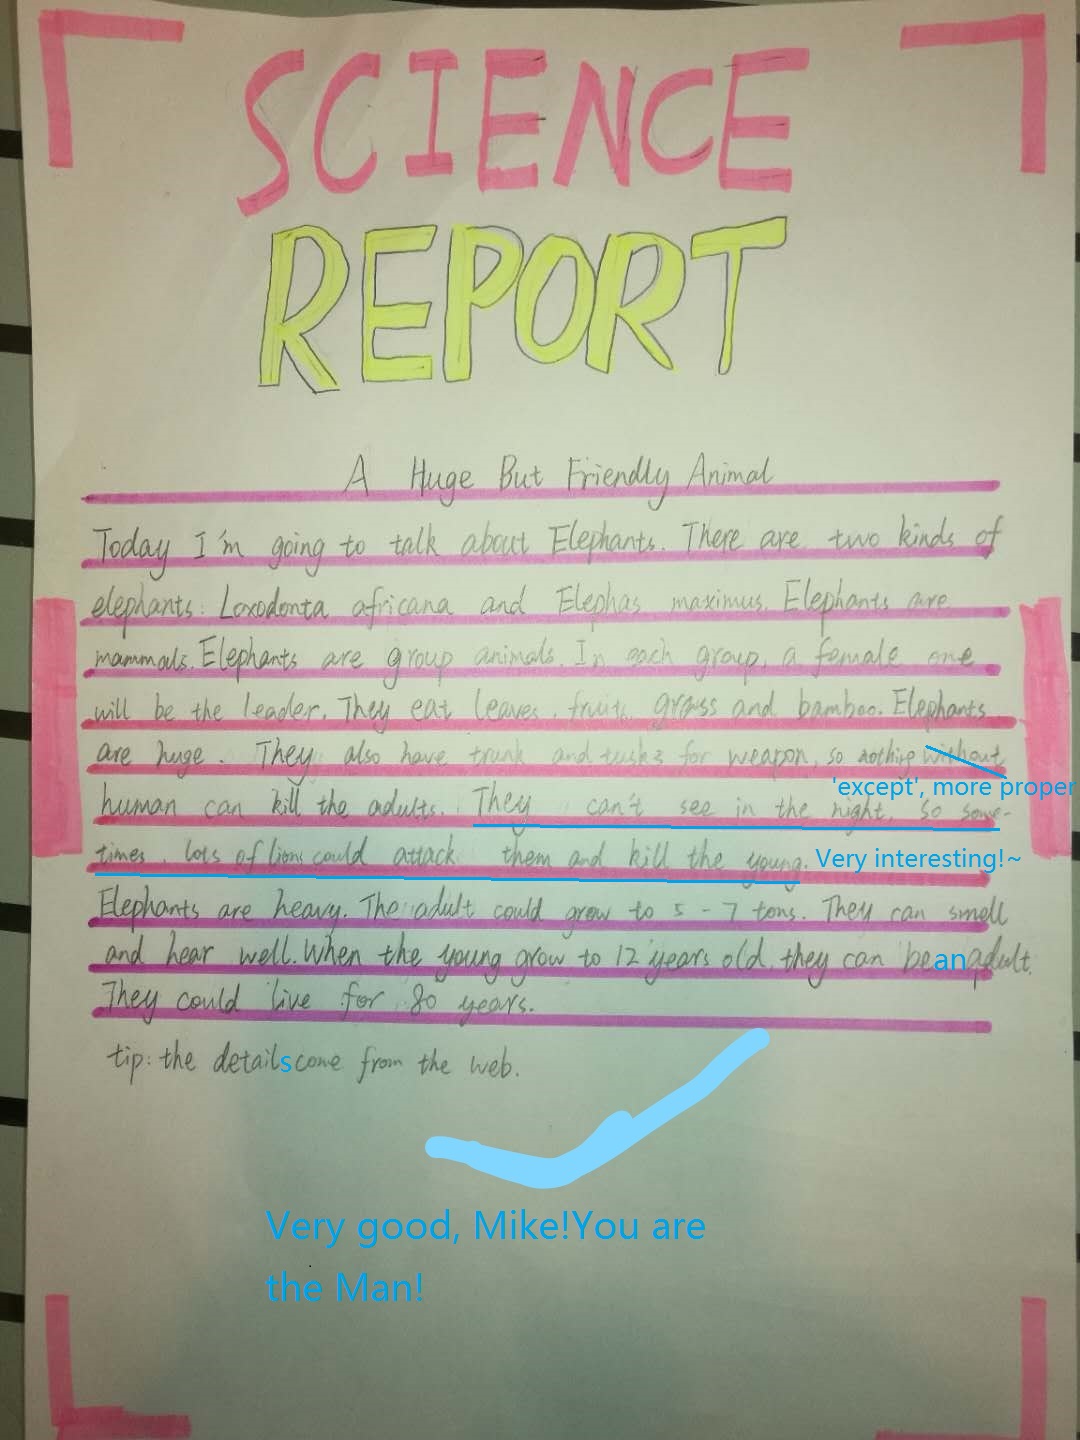 SCIENCE
REPORT
A Huge But Friendly Animal
Today I'm going to talk about Elephants. There are two kinds of
elephants: Loxodonta africana and Elephas maximus. Elephants are
mammals. Elephants are group animals. In each group, a female one
will be the leader. They eat leaves, fruit, grass and bamboo. Elephants
are huge. They also have trunk and tusks for weapon, so nothing without
'except', more proper
human can kill the adults. They can't see in the night, so some-
times, lots of lions could attack them and kill the young. Very interesting!~
Elephants are heavy. The adult could grow to 5-7 tons. They can smell
and hear well. When the young grow to 12 years old, they can be an adult.
They could live for 80 years.
tip: the details come from the web.
Very good, Mike!You are
the Man!